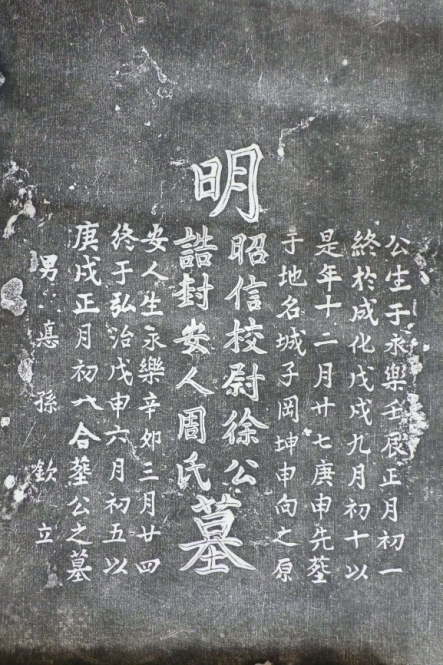 公生于永樂壬辰正月初一
終於成化戊戌九月初十以
是年十二月廿七庚申先塟
于地名城子岡坤申向之原
明
昭信校尉徐公
誥封安人周氏
墓
安人生永樂辛卯三月廿四
終于弘治戊申六月初五以
庚戌正月初八合塟公之墓
男悳孫欽立